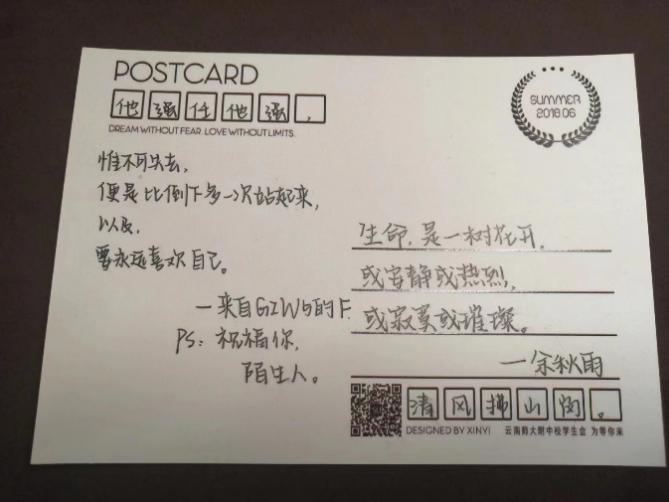 POSTCARD
他强任他强,
DREAM WITHOUT FEAR. LOVE WITHOUT LIMITS.
SUMMER
2018.06
惟不可失去,
便是比倒下多一次站起来,
以及,
要永远喜欢自己。
—来自G2W5的F.
PS: 祝福你,
陌生人。
生命,是一树花开,
或安静或热烈,
或寂寞或璀璨。
—余秋雨
清风拂山岗。
DESIGNED BY XINYI 云南师大附中校学生会 为等你来